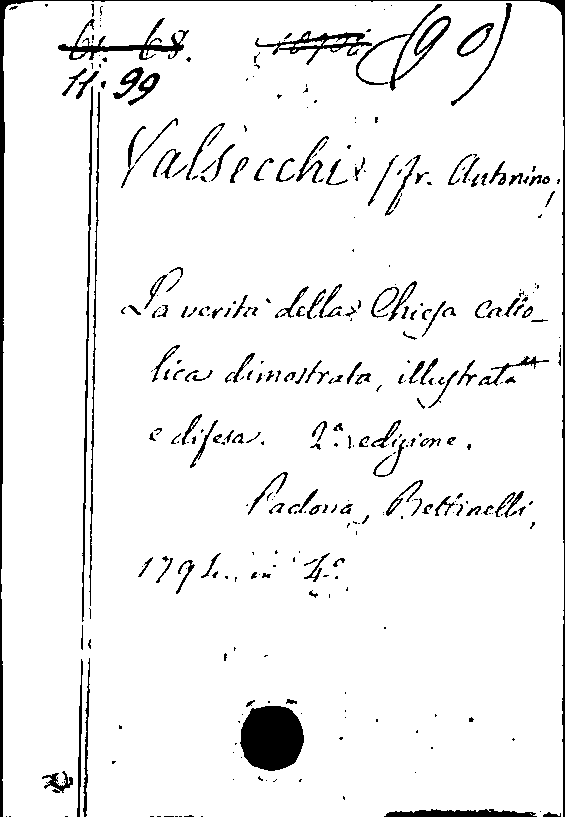 (90)
11. 99
Valsecchi, fr. Antonino,
La verità della Chiesa catto-
lica dimostrata, illustrata
e difesa. 2ª edizione.
Padova, Bettinelli,
1794. in 4º